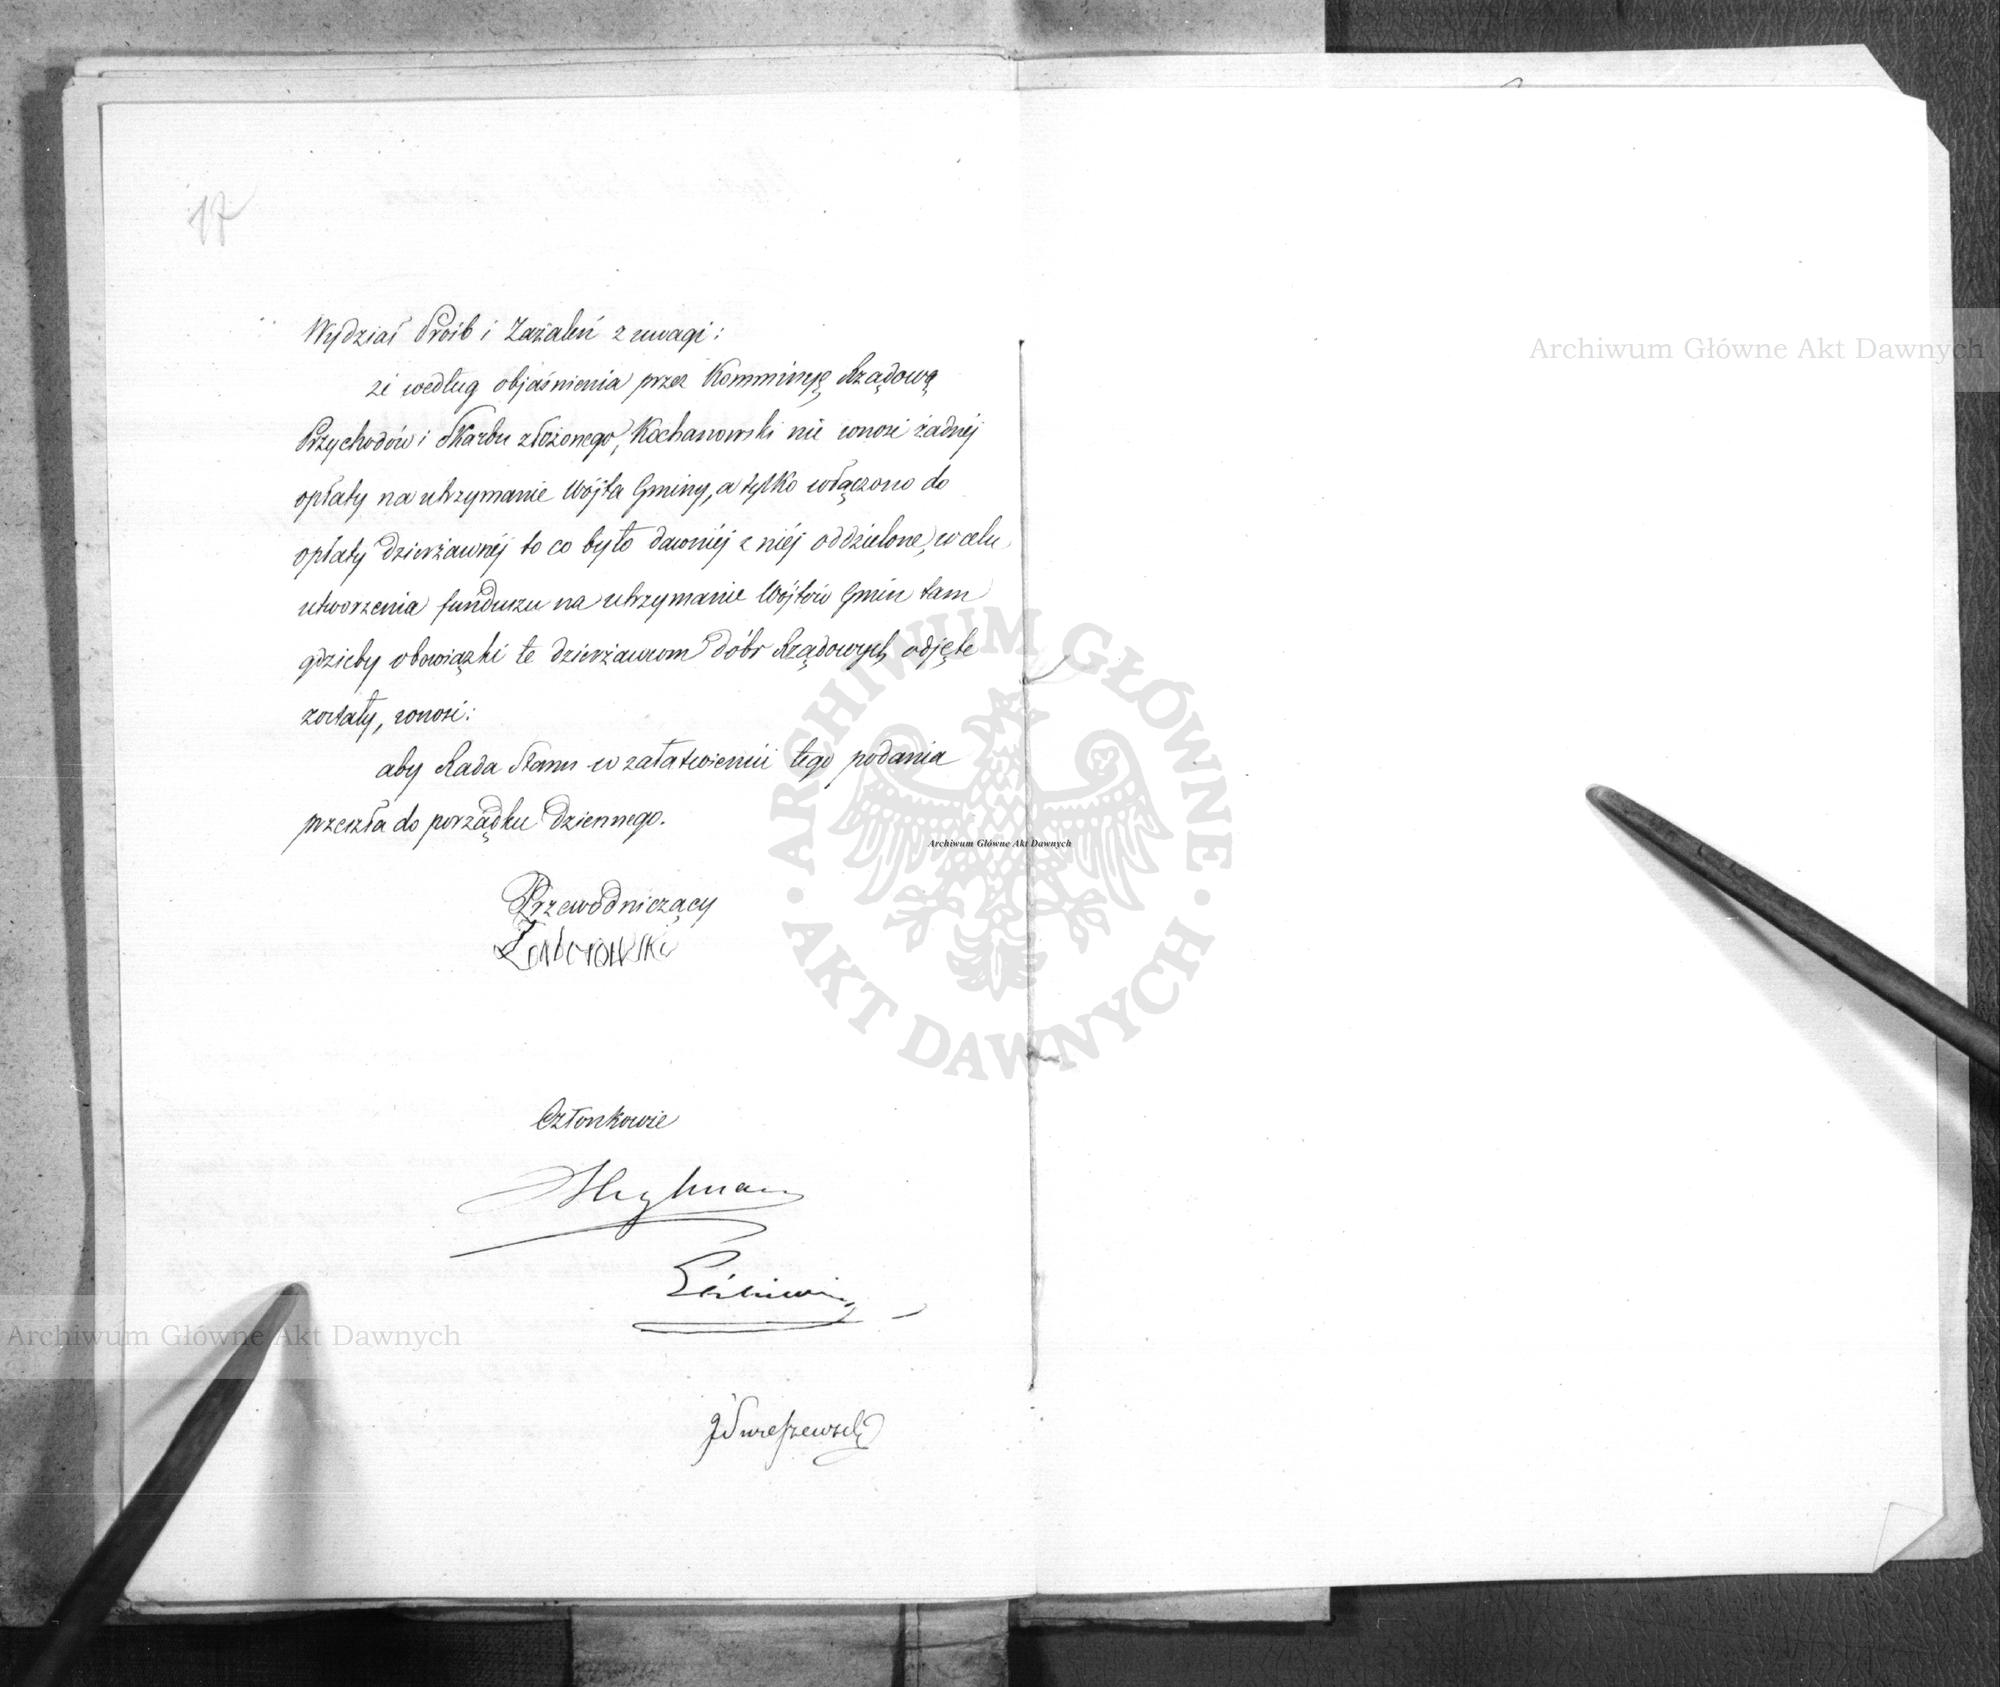 17
Wydział Próśb i Zażaleń z uwagi:
że według objaśnienia przez Kommissyę Rządową
Przychodów i Skarbu złożonego, Kochanowski nie wnosi żadnéj
opłaty na utrzymanie Wójta Gminy, a tylko włączono do
opłaty dzierżawnéj to co było dawniéj z niéj oddzielone, w celu
utworzenia funduszu na utrzymanie Wójtów Gmin tam
gdzieby obowiązki te dzierżawcom dóbr Rządowych odjęte
zostały, wnosi:
aby Rada Stanu w załatwieniu tego podania
przeszła do porządku dziennego.
Przewodniczący
Zaborowski
Członkowie
Heylman
Archiwum Główne Akt Dawnych
Archiwum Główne Akt Dawnych
Archiwum Główne Akt Dawnych
ARCHIWUM GŁÓWNE
AKT DAWNYCH